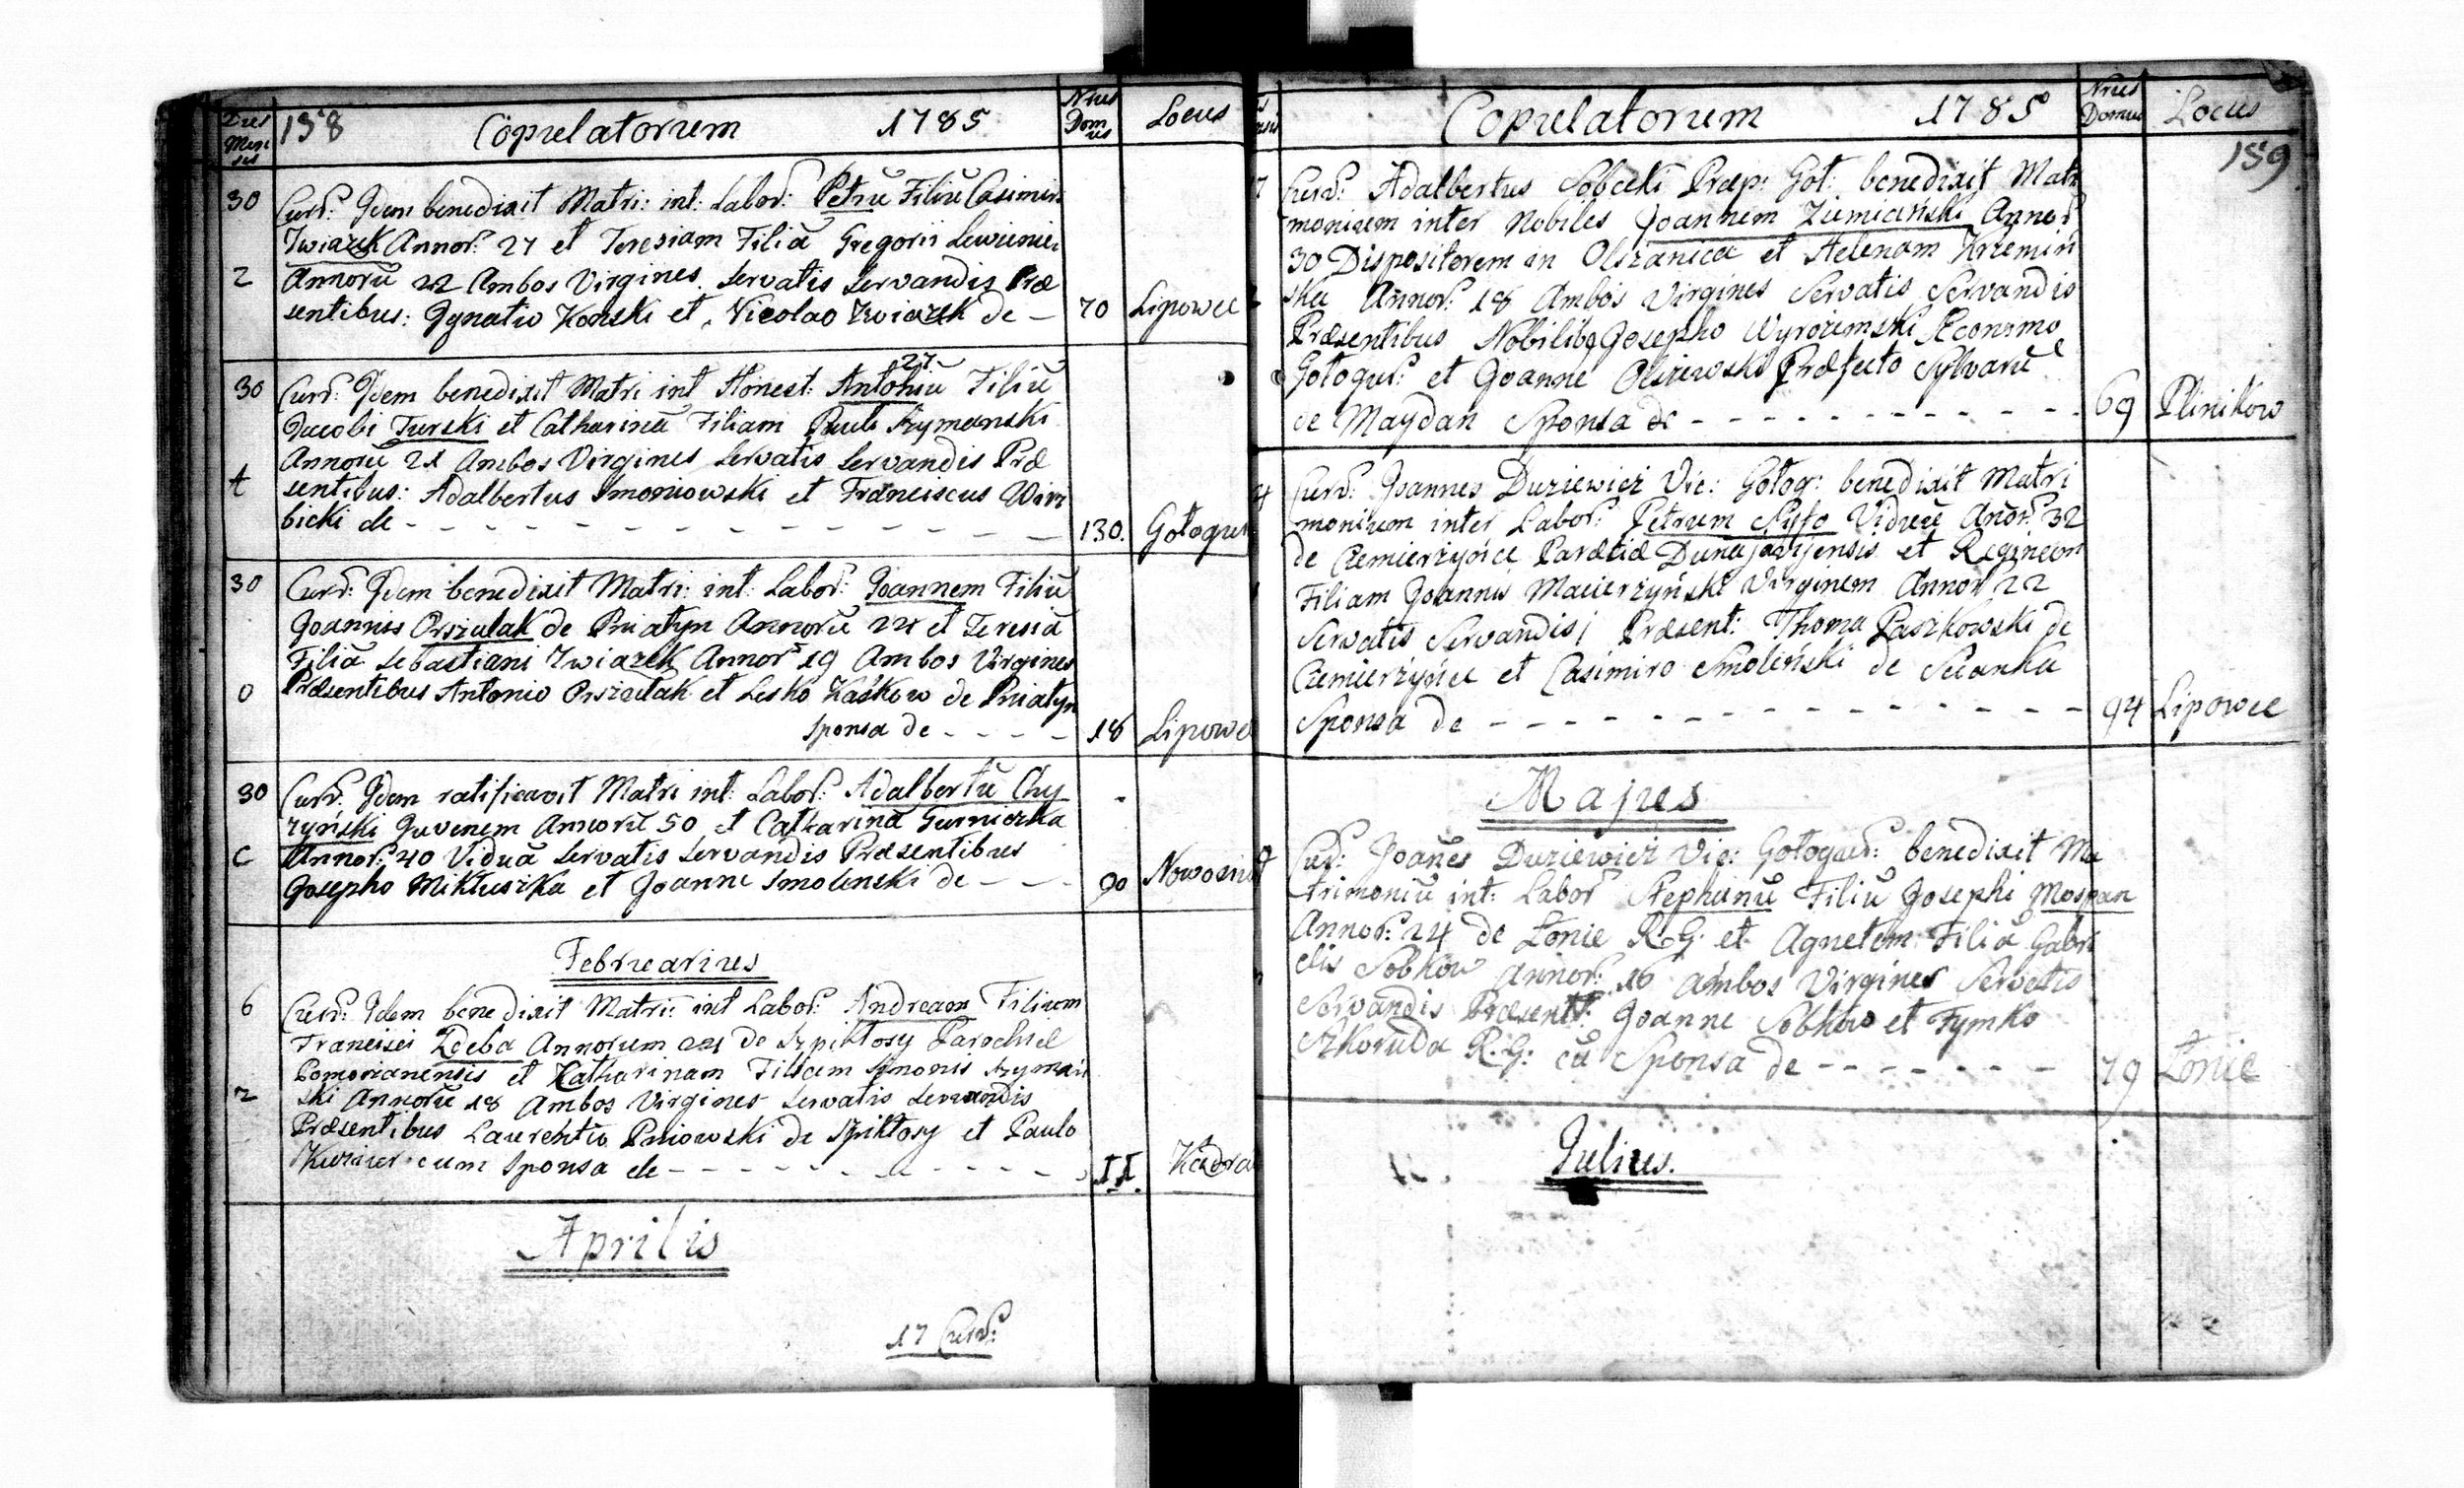 Dies Mensis 138 Copulatorum 1785 Nrus Domus Locus
30 Curd: Idem benedixit Matri: int: Labor: Petrũ Filiũ Casimiri
Zwiazek Annor: 27 et Teresiam Filiã Gregorii
2 Annorũ 22 Ambos Virgines Servatis Servandis Præ
sentibus: Ignatio Konski et Nicolao Zwiazek de – 70 Lipowce
27
30 Curd: Idem benedixit Matri int Honest: Antoniũ Filiũ
Jacobi Turski et Catharinã Filiam Pauli Szymanski
Annorũ 21 Ambos Virgines Servatis Servandis Præ
t sentibus: Adalbertus Smoniowski et Franciscus Wirz
bicki de – – – – – – – – – – – – 130. Gołogur
30 Curd: Idem benedixit Matri: int: Labor: Joannem Filiũ
Joannis Orszulak de Pniatyn Annorũ 24 et Teresiã
Filiã Sebastiani Zwiazek Annor: 19 Ambos Virgines
0 Præsentibus Antonio Orszulak et Lesko Kaśkow de Pniatyn
Sponsa de – – – – 18 Lipowc
30 Curd: Idem ratificavit Matri int: Labor: Adalbertũ Chy
zyński Juvenem Annorũ 50 et Catharinã Gurniczka
C Annor: 40 Viduã Servatis Servandis Præsentibus
Josepho Mikłuszka et Joanne Smolenski de – – – 90 Nowosiu
Februarius
6 Curd: Idem benedixit Matri: int Labor: Andream Filium
Francisci Zdeba Annorum de Szpikłosy Parochiæ
Pomorzanensis et Catharinam Filiam Simonis Szymań
2 ski Annorũ 18 Ambos Virgines Servatis Servandis
Præsentibus Laurentio Pniowski de Spikłosy et Paulo
cum Sponsa de – – – – – – – – – II.
Aprilis
17 Curd:
Copulatorum 1785 Nrus Domus Locus
159
17 Curd: Adalbertus Sobecki Præp: Goł: benedixit Matri
monium inter Nobiles Joannem Ziemiański Annor:
30 Dispositorem in Olszanica et Helenam Krzemiń
ska Annor: 18 Ambos Virgines Servatis Servandis
Præsentibus Nobilibq Josepho Wyrozemski Æconomo
Gołogur: et Joanne Olszewski Præfecto Sylvarũ
de Maydan Sponsa de – – – – – – – – – – – – 69 Plinikow
4 Curd: Joannes Duziewicz Vic: Gołog: benedixit Matri
monium inter Labor: Petrum Viduũ Anor: 32
de Ciemierzyńce Paræciæ Dunajoviensis et Reginam
Filiam Joannis Macierzyński Virginem Annor 22
Servatis Servandis; Præsent: Thoma Paszkowski de
Ciemierzyńce et Casimiro Smoleński de Scianka
Sponsa de – – – – – – – – – – – – – – 94 Lipowce
Majus
Curd: Joañes Duziewicz Vic: Gołogur: benedixit Ma
trimoniũ int: Labor Stephanũ Filiũ Josephi Mospan
Annor: 24 de Łonie R.G. et Agnetem Filiã Gabri
elis Sobkow Annor: 16 Ambos Virgines Servatis
Servandis Præsent: Joanne Sobkow et Fymko
Szkoruda R.G: cũ Sponsa de – – – – – – – 79 Łonie
Julius.